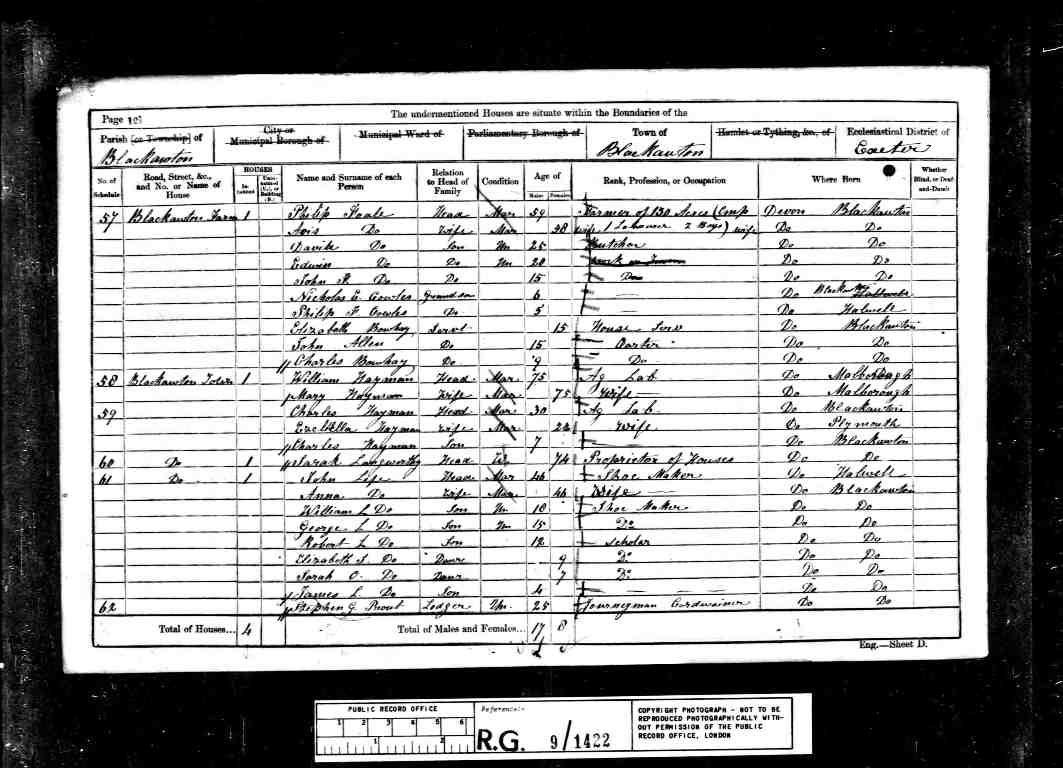 The undermentioned Houses are situate within the Boundaries of the
Page
Parish [or Township] of
Blackawton
City or Municipal Borough of
Municipal Ward of
Parliamentary Borough of
Town of
Blackawton
Hamlet or Tything, &c., of
Ecclesiastical District of
No. of Schedule
Road, Street, &c., and No. or Name of House
HOUSES
Name and Surname of each Person
Relation to Head of Family
Condition
Age of
Males
Females
Rank, Profession, or Occupation
Where Born
Whether Blind, or Deaf-and-Dumb
57 Blackawton Farm 1 Philip Head Mar 59 Farmer of 130 Acres Devon Blackawton
Avis Do Wife Mar 2 Boys) wife Do Do
Do Son Un 25 Butcher Do Do
Edwin Do Do Un 20 Do Do
John Do Do 15 Do Do Do
Nicholas E. Cowles Grandson 6 Do
Philip F Cowles Do 5 Do Halwell
Elizabeth Bowhay Servt 15 House Serv Do Blackawton
John Allen Do 15 Carter Do Do
Charles Bowhay Do 9 Do Do Do
58 Blackawton Town 1 William Hayman Head Mar 75 Ag Lab Do Malborough
Mary Hayman Wife Mar 75 Wife Do Malborough
59 Charles Hayman Head Mar 30 Ag Lab Do Blackawton
Hayman Wife Mar 22 Wife Do Plymouth
Charles Hayman Son 7 Do Blackawton
60 Do 1 Sarah Langworthy Head W 74 Proprietor of Houses Do Do
61 Do 1 John Head Mar 46 Shoe Maker Do Halwell
Anna Do Wife Mar 46 Wife Do Blackawton
William L Do Son Un 18 Shoe Maker Do Do
George L Do Son Un 15 Do Do Do
Robert L Do Son 12 Scholar Do Do
Elizabeth Do Daur 9 Do Do Do
Sarah O. Do Daur 7 Do Do Do
James L Do Son 4 Do Do
62 Stephen G Prout Lodger Un 25 Journeyman Cordwainer Do Do
Total of Houses... 4 Total of Males and Females... 17 8
Eng.—Sheet D.
PUBLIC RECORD OFFICE
1 2 3 4 5 6
1 2
Reference:-
R.G. 9/1422
COPYRIGHT PHOTOGRAPH - NOT TO BE
REPRODUCED PHOTOGRAPHICALLY WITH-
OUT PERMISSION OF THE PUBLIC
RECORD OFFICE, LONDON